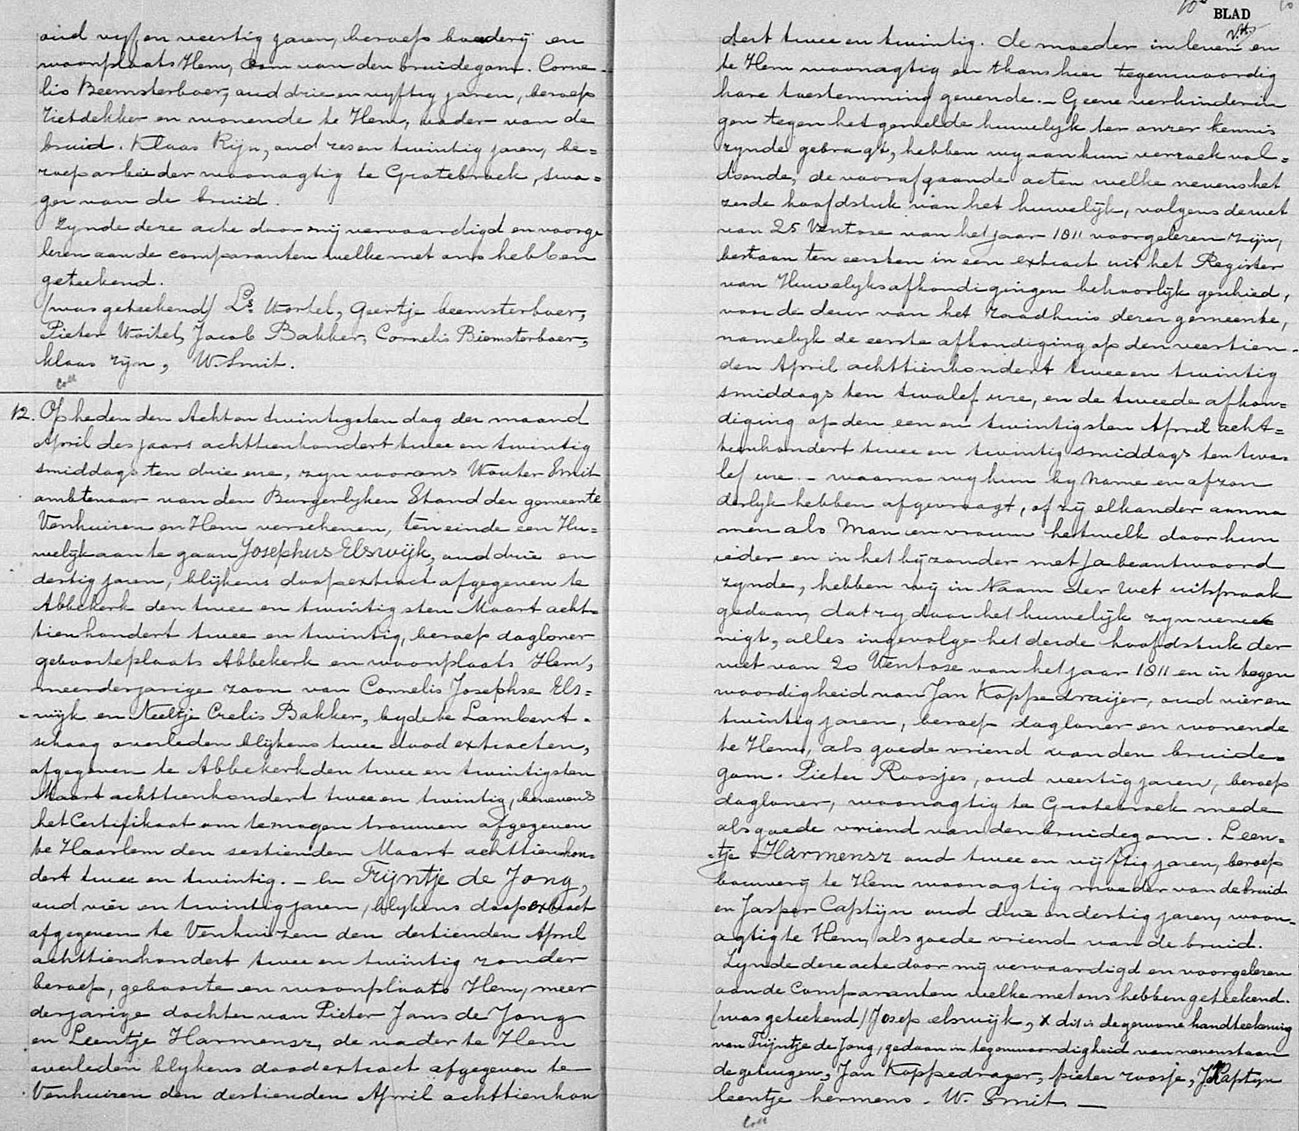 oud vyf en veertig jaren, beroep bouderij en
woonplaats Hem, oom van den bruidegom. Corne-
lis Beemsterboer, oud drie en vyftig jaren, beroep
rietdekker en wonende te Hem, vader van de
bruid. Klaas Rijn, oud zes en twintig jaren, be=
roep arbeider woonagtig te Grotebroek, swa=
ger van de bruid.
Zynde deze acte door mij vervaardigd en voorge
lezen aan de comparanten welke met ons hebben
geteekend.
(was geteekend) Ls. Wortel, Geertje beemsterboer,
Pieter Wortel, Jacob Bakker, Cornelis Beemsterboer,
klaas rijn, W. Smit.
Coll
12. Op heden den Acht en twintigsten dag der maand
April des jaars achttienhonderd twee en twintig
smiddags ten drie ure, zyn voor ons Wouter Smit
ambtenaar van den Burgerlyken Stand der gemeente
Venhuizen en Hem verschenen, ten einde een Hu-
welijk aan te gaan Josephus Elswijk, oud drie en
dertig jaren, blijkens doopextract afgegeven te
Abbekerk den twee en twintigsten Maart acht-
tienhondert twee en twintig, beroep dagloner
geboorteplaats Abbekerk en woonplaats Hem,
meerderjarige zoon van Cornelis Josephse Els=
wijk en Neeltje Crelis Bakker, byde te Lambert-
schaag overleden blijkens twee dood extracten,
afgegeven te Abbekerk den twee en twintigsten
Maart achttienhondert twee en twintig, benevens
het Certifikaat om te mogen trouwen afgegeven
te Haarlem den sestienden Maart achttienhon-
dert twee en twintig. — En Trijntje de Jong,
oud vier en twintig jaren, blykens doopextract
afgegeven te Venhuizen den dertienden April
achttienhondert twee en twintig zonder
beroep, geboorte en woonplaats Hem, meer
derjarige dochter van Pieter Jans de Jong
en Leentje Harmensz, de vader te Hem
overleden blykens doodextract afgegeven te
Venhuizen den dertienden April achttienhon
BLAD
dert twee en twintig. de moeder in leven en
te Hem woonagtig en thans hier tegenwoordig
hare toestemming gevende. — Geene verhinderin
gen tegen het gemelde huwelijk ter onzer kennis
zynde gebragt, hebben wy aan hun verzoek vol=
doende, de voorafgaande acten welke nevens het
zesde hoofdstuk van het huwelijk, volgens de wet
van 25 Ventose van het jaar 1811 voorgelezen zijn,
bestaan ten eersten in een extract uit het Register
van Huwelyksafkondigingen behoorlijk geschied,
voor de deur van het raadhuis dezer gemeente,
namelyk de eerste afkondiging op den veertien-
den April achttienhondert twee en twintig
smiddags ten twalef ure, en de tweede afkon=
diging op den een en twintigsten April acht=
tienhondert twee en twintig smiddags ten twa
lef ure. — waarna wy hun by Name en afzon
derlyk hebben afgevraagt, of zij elkander aanna
men als Man en vrouw hetwelk door hun
ieder en in het byzonder met Ja beantwoord
zynde, hebben wij in Naam der Wet uitspraak
gedaan, dat zy door het huwelijk zyn veree
nigt, alles ingevolge het derde hoofdstuk der
wet van 20 Ventose van het jaar 1811 en in tegen
woordigheid van Jan Koppedraijer, oud vier en
twintig jaren, beroep dagloner en wonende
te Hem, als goede vriend van den bruide=
gom. Pieter Roosjes, oud veertig jaren, beroep
dagloner, woonagtig te Grotebroek mede
als goede vriend van den bruidegom Leen-
tje Harmensz oud twee en vijftig jaren, beroep
bouwery te Hem woonagtig moeder van de bruid
en Jasper Captijn oud drie en dertig jaren, woon-
agtig te Hem, als goede vriend van de bruid.
Zynde deze acte door mij vervaardigd en voorgelezen
aan de Comparanten welke met ons hebben geteekend.
(was geteekend) Josep elswijk, X dit is de gewone handteekening
van Trijntje de Jong, gedaan in tegenwoordigheid van nevenstaan
de getuigen, Jan Koppedrayer, pieter roosje, J Kaptyn
leentje hermens. W. Smit. —
Coll